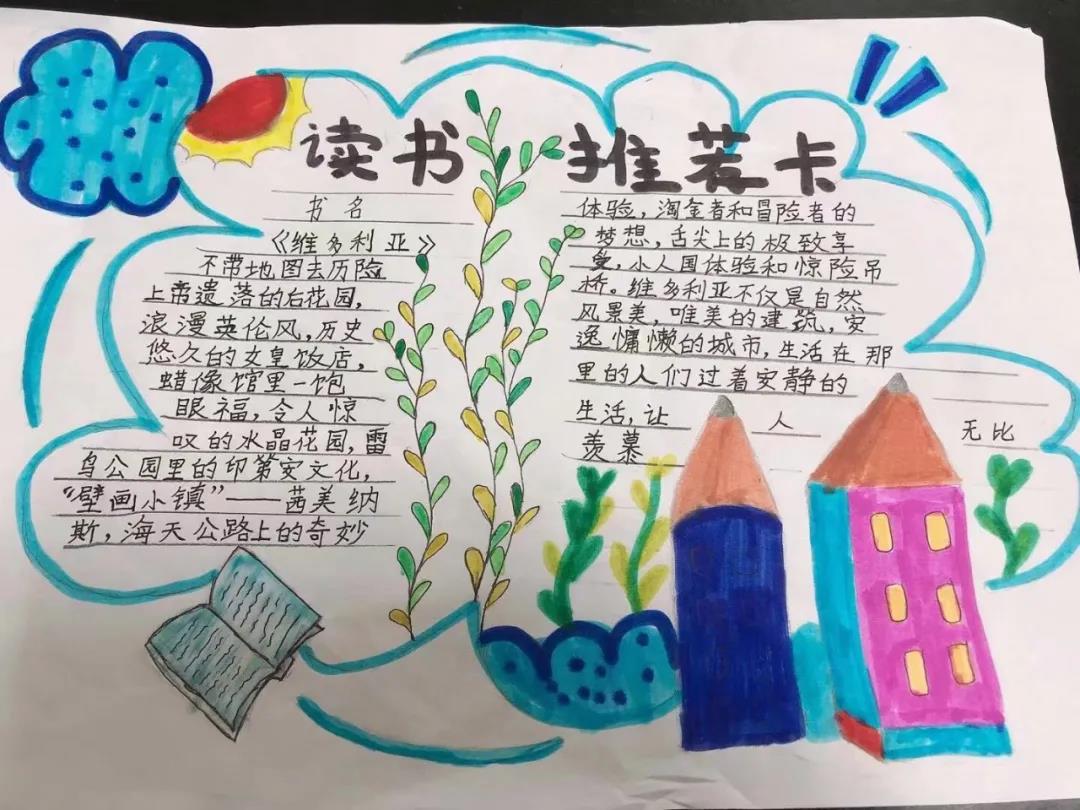 读书 推荐卡
书名
《维多利亚》
不带地图去历险
上帝遗落的后花园，
浪漫英伦风，历史
悠久的女皇饭店，
蜡像馆里一饱
眼福，令人惊
叹的水晶花园，雷
鸟公园里的印第安文化，
“壁画小镇”——茜美纳
斯，海天公路上的奇妙
体验，淘金者和冒险者的
梦想，舌尖上的极致享
受，小人国体验和惊险吊
桥。维多利亚不仅是自然
风景美，唯美的建筑，安
逸慵懒的城市，生活在那
里的人们过着安静的
生活，让 人 无比
羡慕